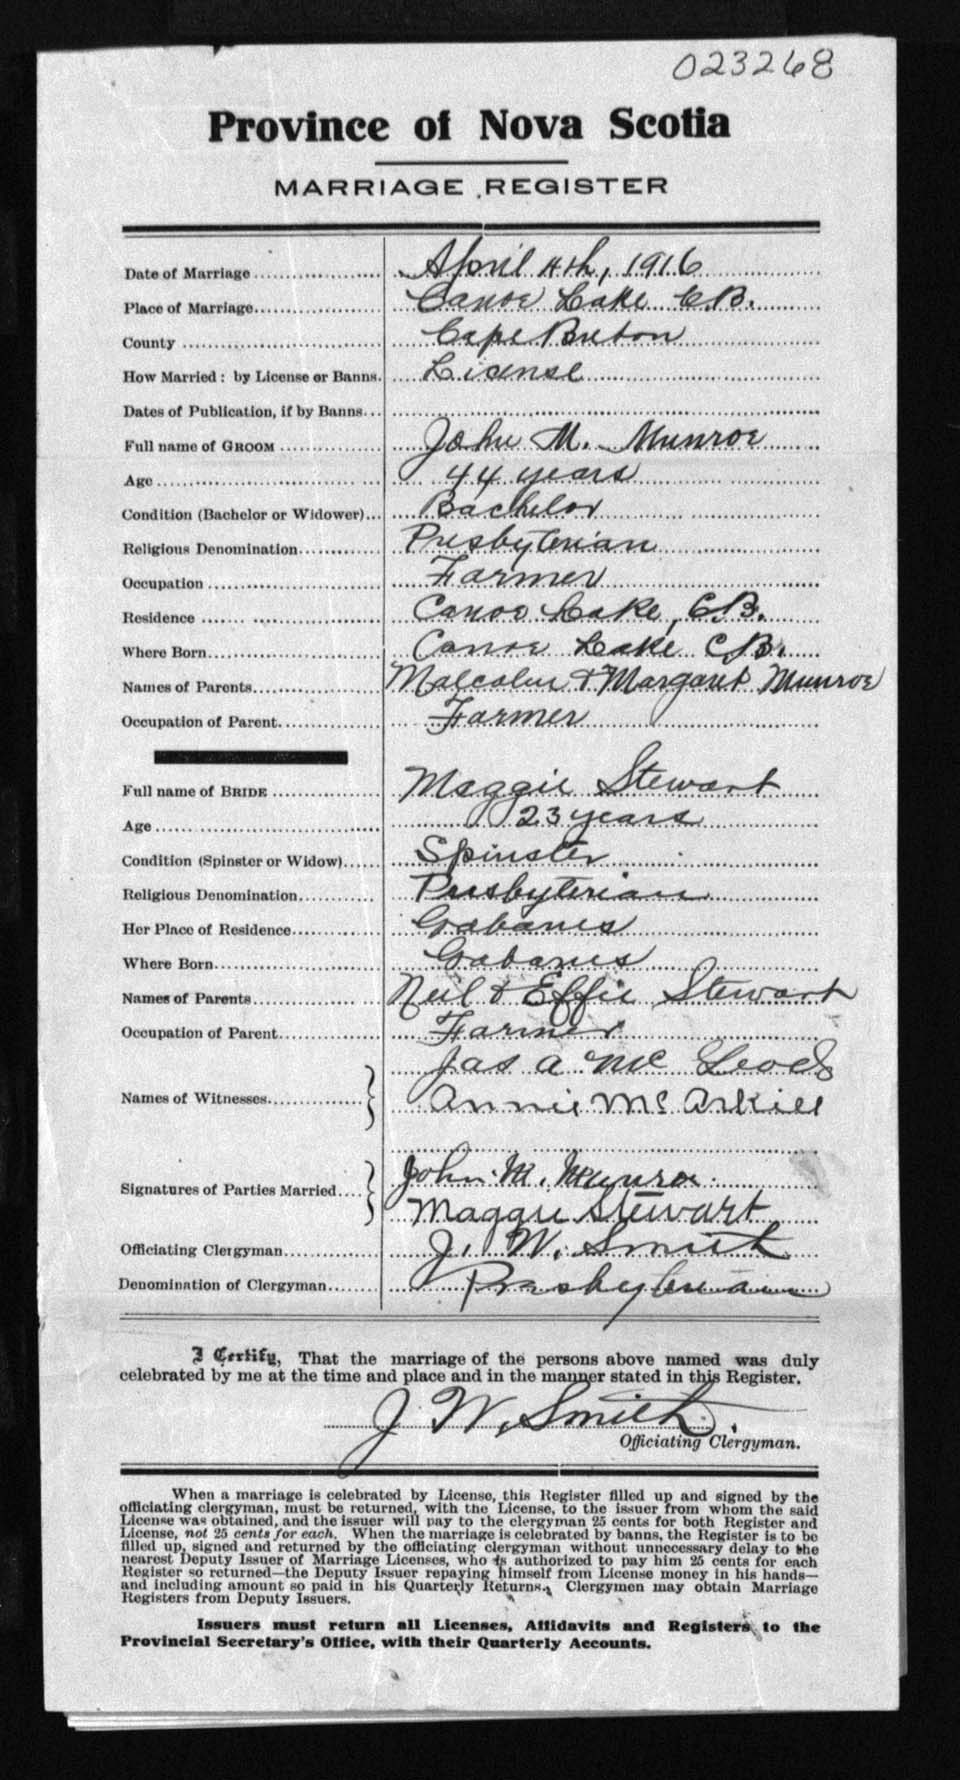 023268
Province of Nova Scotia
MARRIAGE REGISTER
Date of Marriage April 4th, 1916
Place of Marriage Canoe Lake C.B.
County Cape Breton
How Married: by License or Banns. License
Dates of Publication, if by Banns
Full name of GROOM John M. Munroe
Age 44 years
Condition (Bachelor or Widower) Bachelor
Religious Denomination Presbyterian
Occupation Farmer
Residence Canoe Lake, C.B.
Where Born Canoe Lake C.B.
Names of Parents Malcolm & Margaret Munroe
Occupation of Parent Farmer
Full name of BRIDE Maggie Stewart
Age 23 years
Condition (Spinster or Widow) Spinster
Religious Denomination Presbyterian
Her Place of Residence Gabarus
Where Born Gabarus
Names of Parents Neil & Effie Stewart
Occupation of Parent Farmer
Jas A Mc Leod
Names of Witnesses Annie Mc
John M. Munroe
Signatures of Parties Married
Maggie Stewart
Officiating Clergyman J. W. Smith
Denomination of Clergyman Presbyterian
I Certify, That the marriage of the persons above named was duly
celebrated by me at the time and place and in the manner stated in this Register.
J. W. Smith
Officiating Clergyman.
When a marriage is celebrated by License, this Register filled up and signed by the
officiating clergyman, must be returned, with the License, to the issuer from whom the said
License was obtained, and the issuer will pay to the clergyman 25 cents for both Register and
License, not 25 cents for each. When the marriage is celebrated by banns, the Register is to be
filled up, signed and returned by the officiating clergyman without unnecessary delay to the
nearest Deputy Issuer of Marriage Licenses, who is authorized to pay him 25 cents for each
Register so returned—the Deputy Issuer repaying himself from License money in his hands—
and including amount so paid in his Quarterly Returns. Clergymen may obtain Marriage
Registers from Deputy Issuers.
Issuers must return all Licenses, Affidavits and Registers to the
Provincial Secretary's Office, with their Quarterly Accounts.